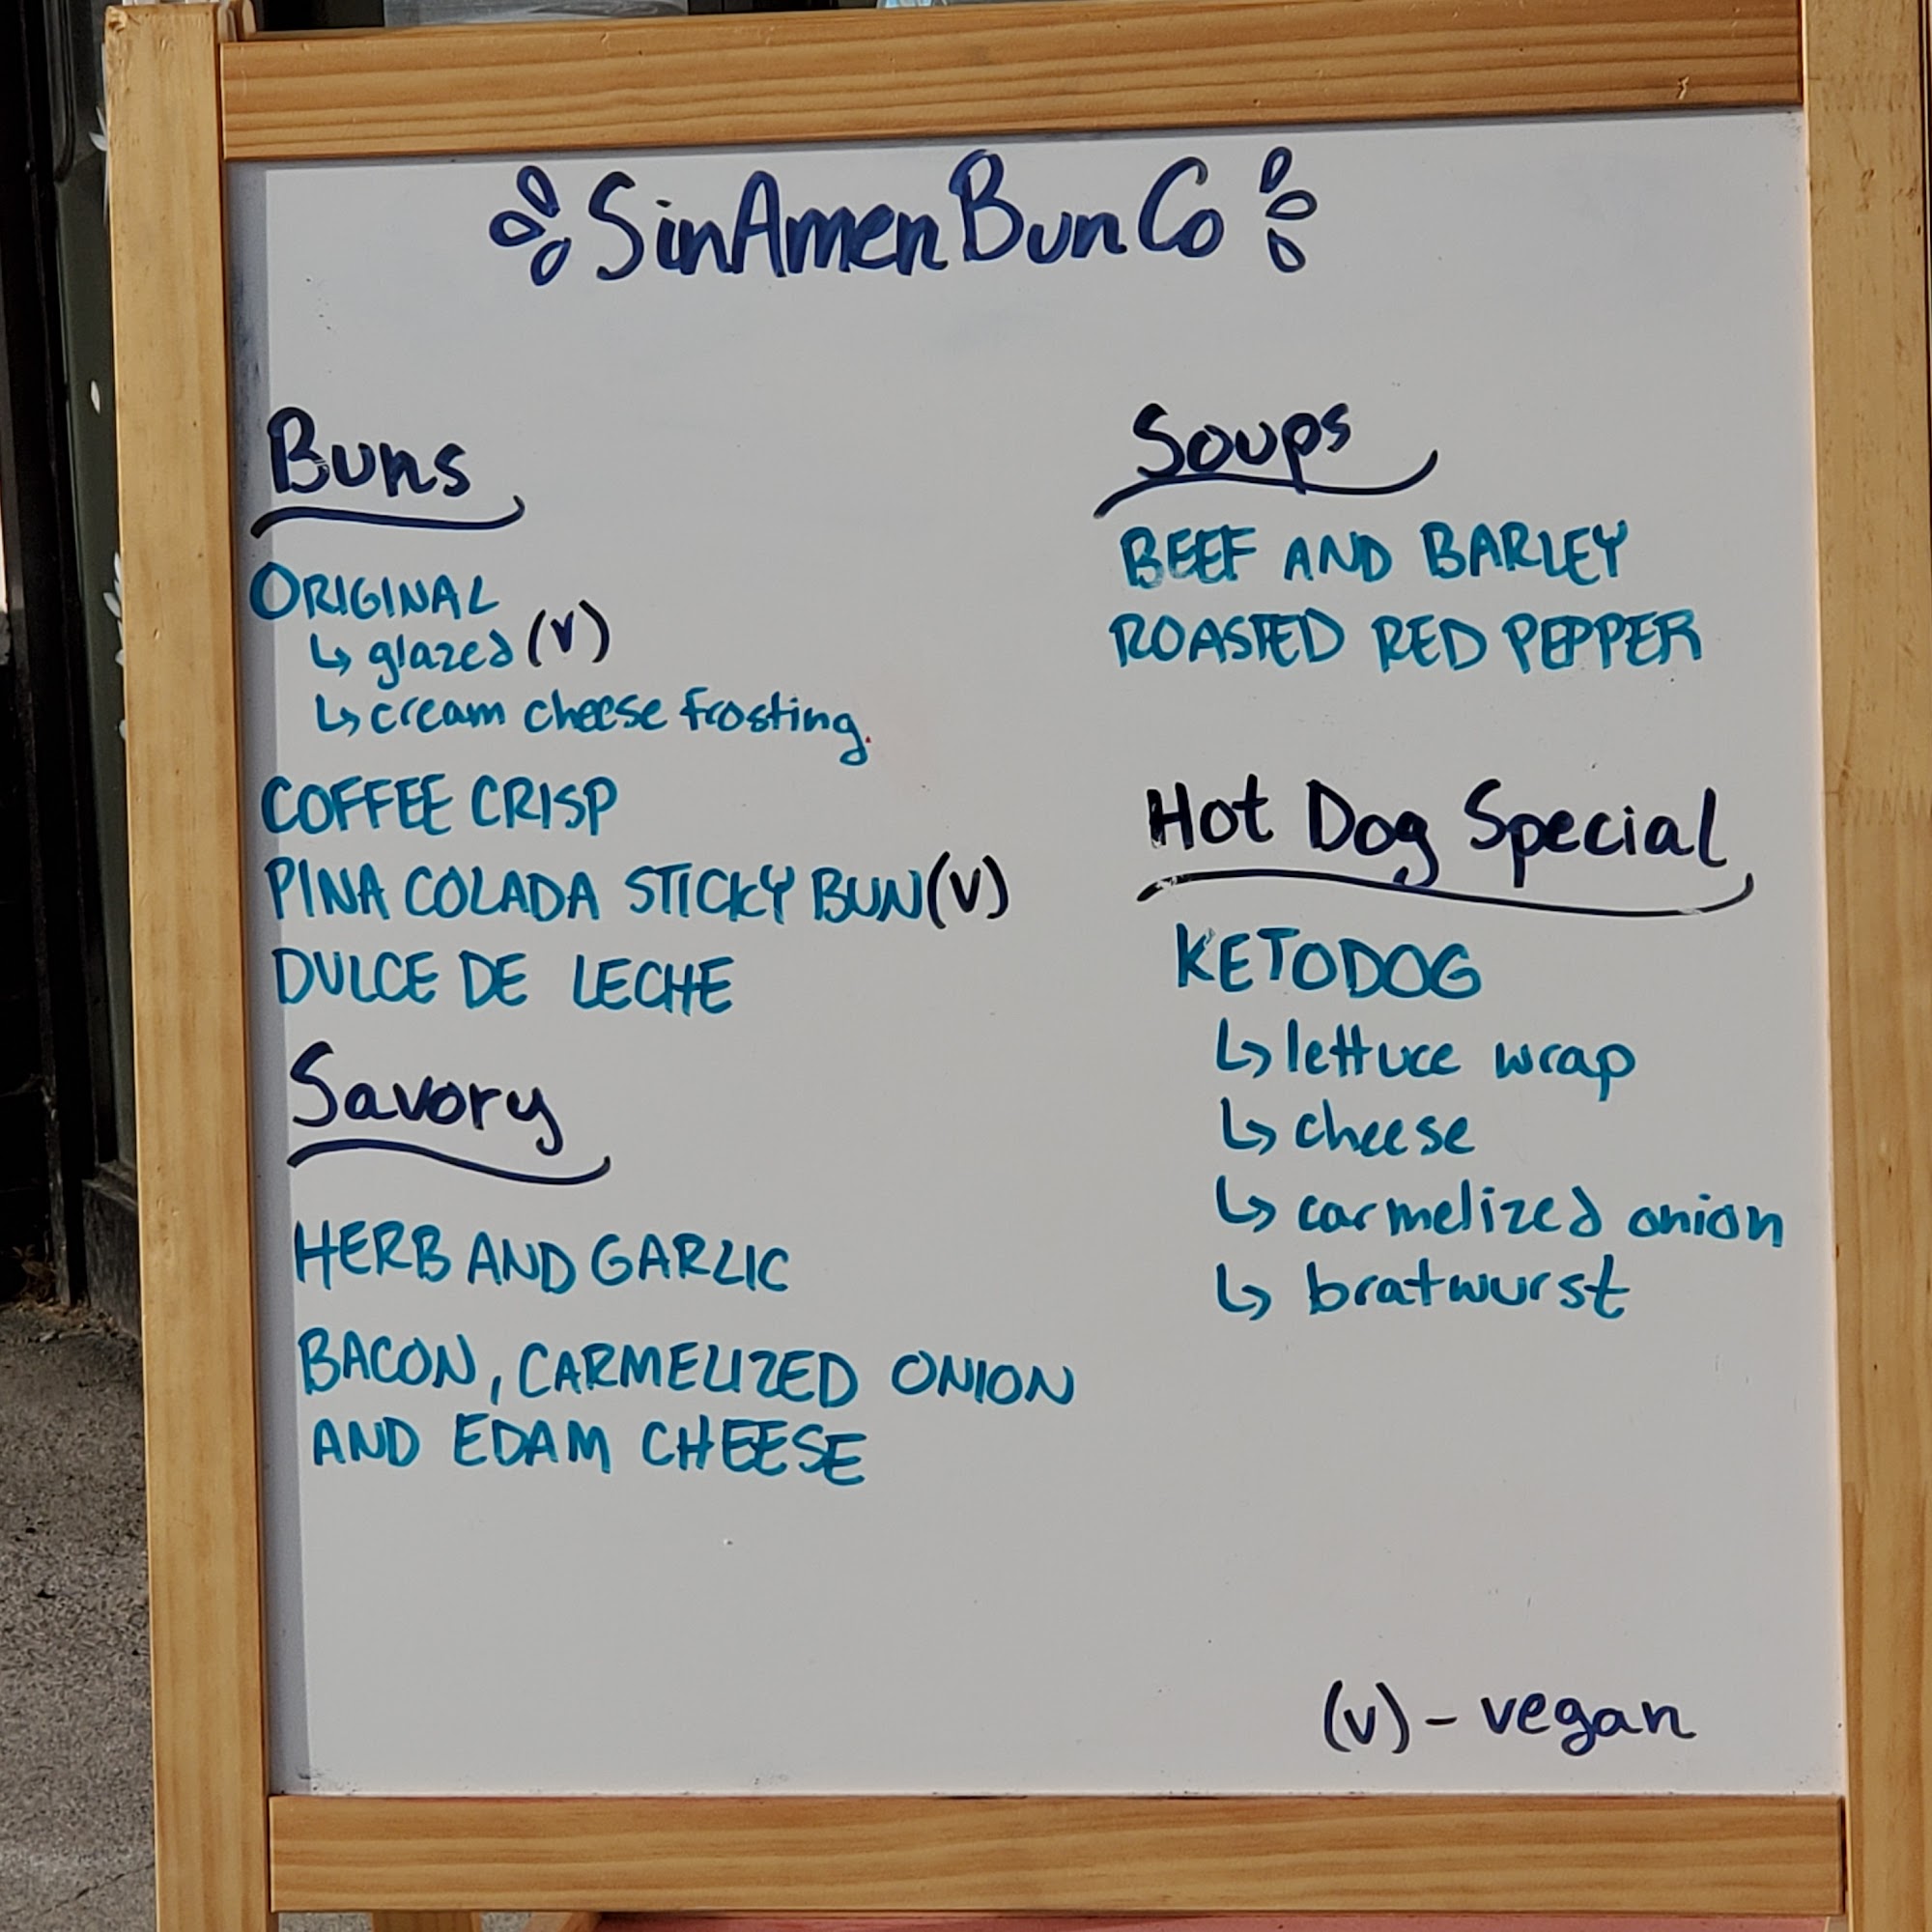 SinAmenBunCo
Buns
ORIGINAL
↳ glazed (V)
↳ cream cheese frosting.
COFFEE CRISP
PINA COLADA STICKY BUN (V)
DULCE DE LECHE
Savory
HERB AND GARLIC
BACON, CARMELIZED ONION
AND EDAM CHEESE
Soups
BEEF AND BARLEY
ROASTED RED PEPPER
Hot Dog Special
KETODOG
↳ lettuce wrap
↳ cheese
↳ carmelized onion
↳ bratwurst
(v) - vegan